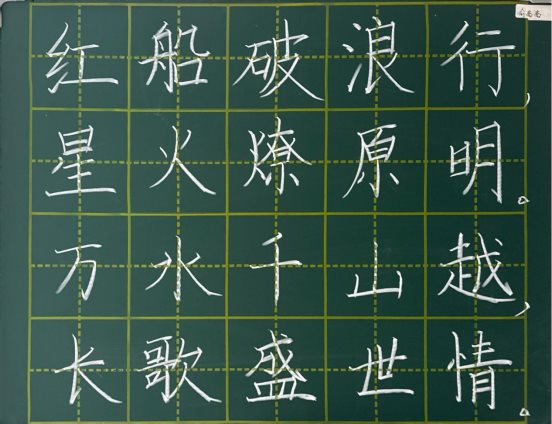 红船破浪行，
星火燎原明。
万水千山越，
长歌盛世情。